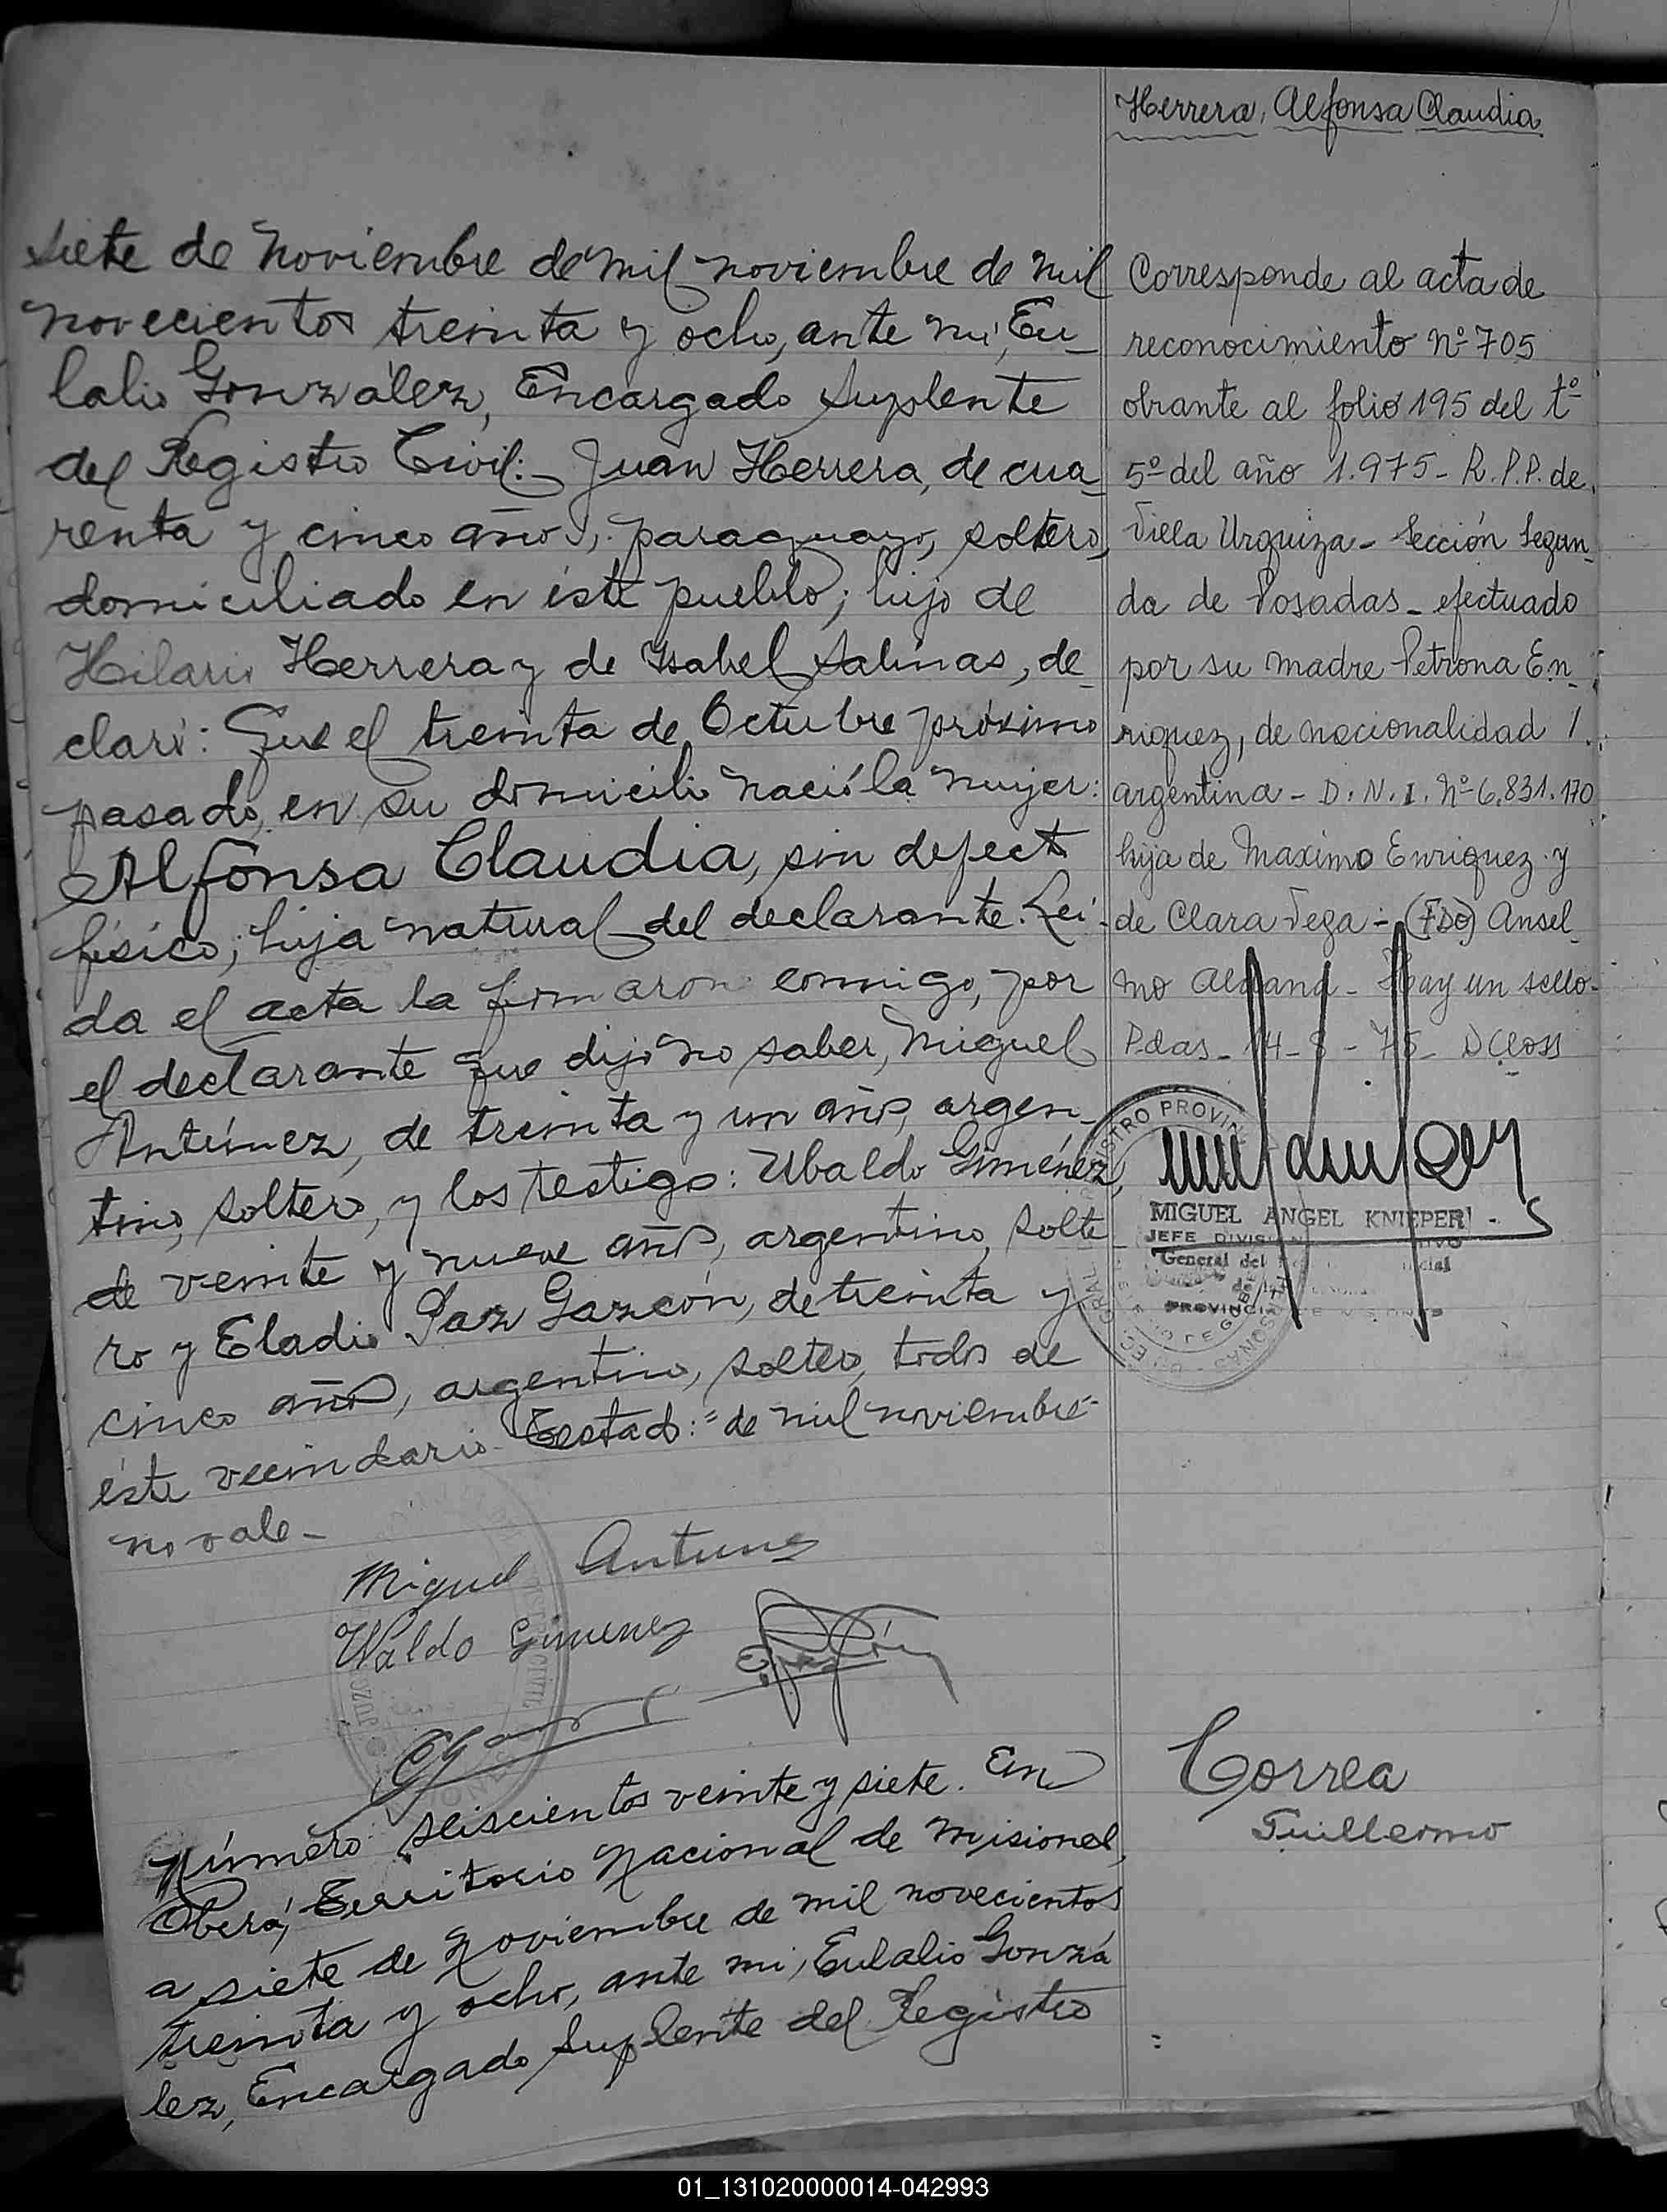 Herrera, Alfonsa Claudia
siete de Noviembre de mil noviembre de mil
novecientos treinta y ocho, ante mí, Eu-
lalio González, Encargado Suplente
del Registro Civil:- Juan Herrera, de cua-
renta y cinco años, paraguayo, soltero,
domiciliado en éste pueblo; hijo de
Hilario Herrera y de Isabel Salinas, de-
claró: Que el treinta de Octubre próximo
pasado, en su domicilio nació la mujer:
Alfonsa Claudia, sin defecto
físico; hija natural del declarante. Leí-
da el acta la firmaron conmigo, por
el declarante que dijo no saber, Miguel
Antúnez, de treinta y un años, argen-
tino, soltero, y los testigos: Ubaldo Giménez,
de veinte y nueve años, argentino, solte
ro y Eladio Paz Garzón, de treinta y
cinco años, argentino, soltero, todos de
éste vecindario. Testado: "de mil noviembre"
no vale-
Miguel Antunez
Waldo Gimenez
Corresponde al acta de
reconocimiento Nº 705
obrante al folio 195 del tº
5º del año 1.975- R.P.P. de
Villa Urquiza- Sección Segun-
da de Posadas- efectuado
por su madre Petrona En-
riquez, de nacionalidad
argentina- D.N.I. Nº 6.831.170
hija de Maximo Enriquez y
de Clara Vega- (FDO) Ansel-
mo Aldana- Hay un sello-
Pdas- 14-8-75-
MIGUEL ANGEL KNIEPERT
JEFE
General del
PROVINCIA
Número seiscientos veinte y siete. En
Oberá, Territorio Nacional de Misiones,
a siete de Noviembre de mil novecientos
treinta y ocho, ante mí, Eulalio Gonzá
lez, Encargado Suplente del Registro
Correa
Guillermo
01_131020000014-042993